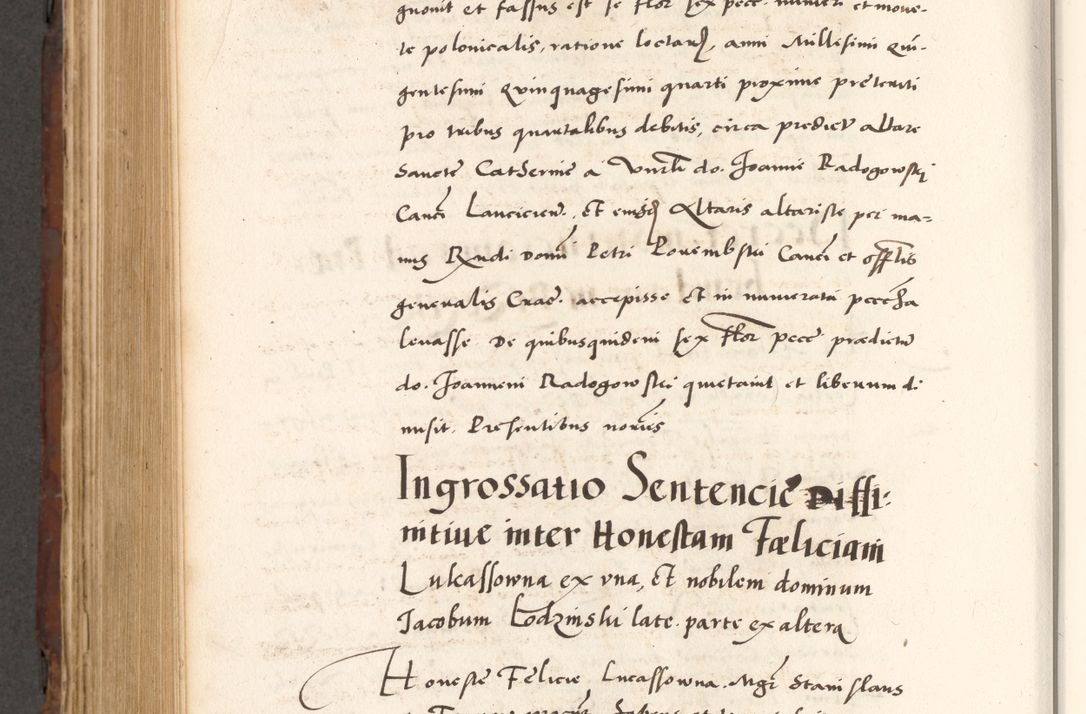 gnovit et fassus est se flor sex pecc. numeri et mone-
te polonicalis, ratione loctarum, anni Millesimi Quin-
gentesimi Quinquagesimi quarti proxime preteriti
pro tribus quartalibus debitis, circa predict altare
Sancte Catherine a do. Joanne Radogowski
Canco Lancicien., Et eiusdem Altaris altariste per ma-
nus Rndi Domini Petri Porembski Canci et offtlis
generalis Crac. accepisse Et in numerata peccha
levasse. De quibusquidem sex flor pecc predictum
do. Joannem Radogowski quietavit et liberum di-
misit. Presentibus
Ingrossatio Sentencie Diffi-
nitive inter Honestam Fæliciam
Lukassowna ex una, Et nobilem dominum
Jacobum Lodzinski late. parte ex altera
Honeste Felicie Lucassowna. Mgr Stanislaus